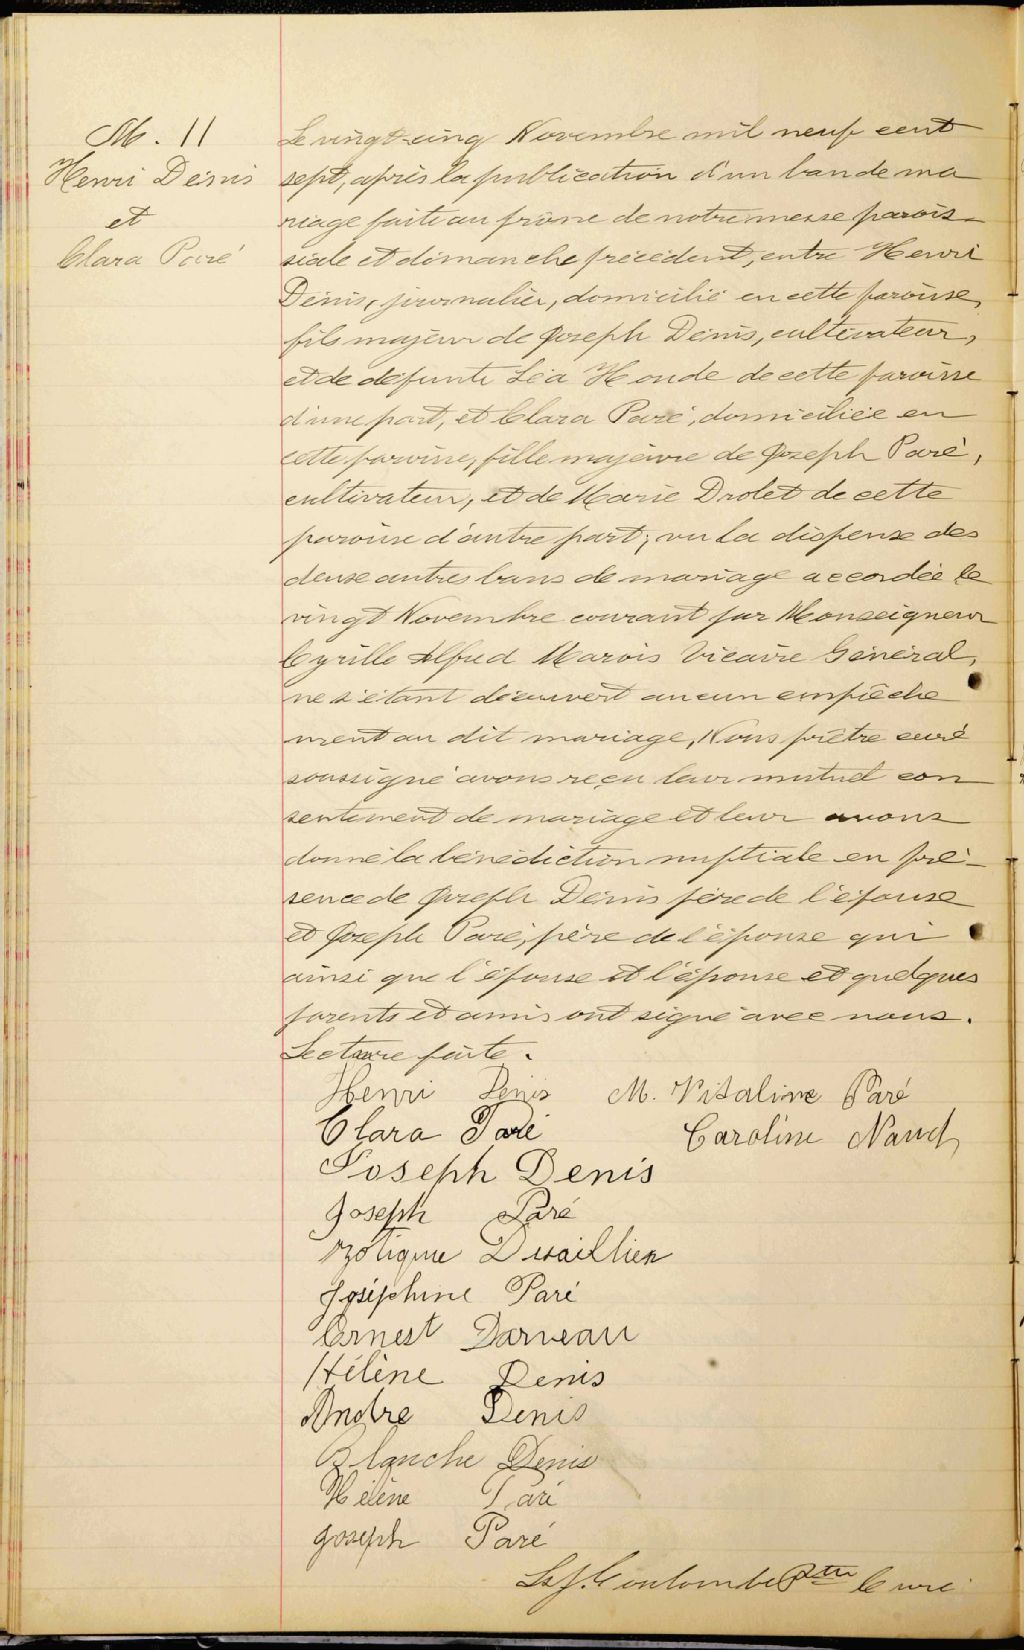 M. 11
Henri Denis
et
Clara Paré
Le vingt-cinq Novembre mil neuf cent
sept, après la publication d'un ban de ma
riage faite au prône de notre messe parois-
siale et dimanche précédent, entre Henri
Denis, journalier, domicilié en cette paroisse,
fils majeur de Joseph Denis, cultivateur,
et de défunte Léa Houde de cette paroisse
d'une part, et Clara Paré, domiciliée en
cette paroisse, fille majeure de Joseph Paré,
cultivateur, et de Marie Drolet de cette
paroisse d'autre part; vu la dispense des
deux autres bans de mariage accordée le
vingt Novembre courant par Monseigneur
Cyrille Alfred Marois Vicaire Général,
ne s'étant découvert aucun empêche
ment au dit mariage, Nous prêtre curé
soussigné avons reçu leur mutuel con
sentement de mariage et leur avons
donné la bénédiction nuptiale en pré-
sence de Joseph Denis père de l'épouse
et Joseph Paré, père de l'épouse qui
ainsi que l'épouse et l'épouse et quelques
parents et amis ont signé avec nous.
Lecture faite.
Henri Denis M. Vitaline Paré
Clara Paré Caroline Naud
Joseph Denis
Joseph Paré
Zotique
Joséphine Paré
Ernest Darveau
Hélène Denis
Andre Denis
Blanche Denis
Hélène Paré
Joseph Paré
Ls J. Coulombe Ptre Curé